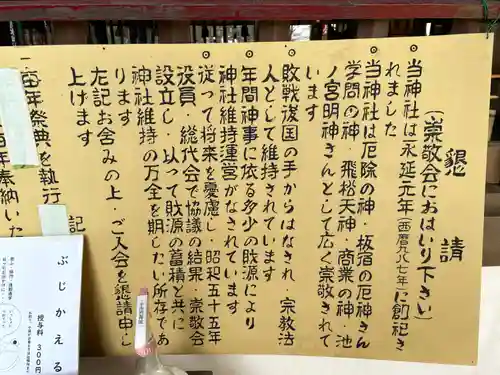 懇請
(崇敬会におはいり下さい)
◎ 当神社は永延元年(西暦九八七年)に創祀き
れました
◎ 当神社は厄除の神・板宿の厄神きん
学問の神・飛松天神・商業の神・池
ノ宮明神きんとして広く崇敬されて
います
◎ 敗戦後国の手からはなされ・宗教法
人として維持されています
◎ 年間神事に依る多少の財源により
神社維持運営がなされています
◎ 従って将来を憂慮し・昭和五十五年
役員・総代会で協議の結果・崇敬会
設立し・以って財源の蓄積と共に
神社維持の万全を期したい所存であ
ります
左記お含みの上・ご入会を懇請申し
上げます
記
百年祭典を執行
百年奉納いた
ぶじかえる
授与料 300円